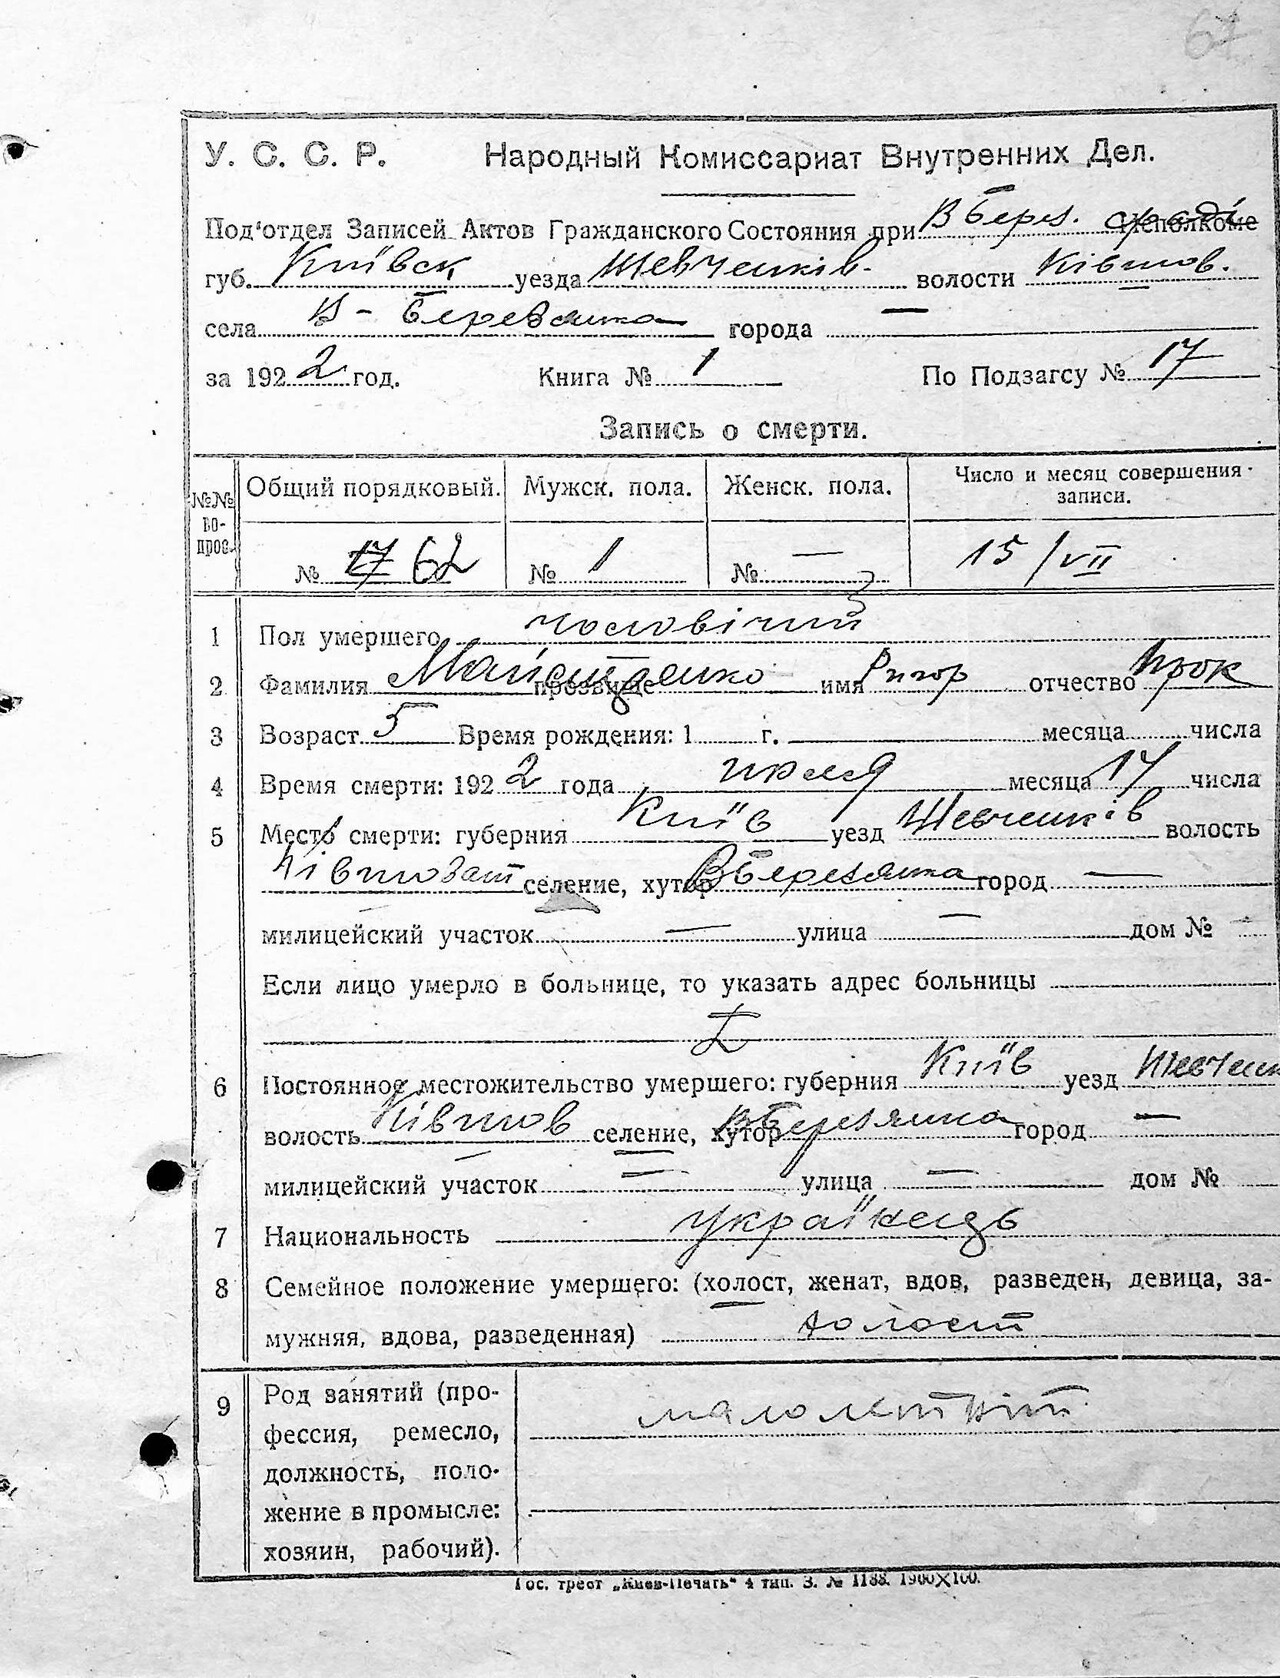 67
У. С. С. Р. Народный Комиссариат Внутренних Дел.
Под'отдел Записей Актов Гражданского Состояния при В Берез. Исполкоме
губ. Київск уезда Шевченків. волости Ківшов.
села В-Березянка города —
за 1922 год. Книга № 1 По Подзагсу № 17
Запись о смерти.
№№ вопрос. Общий порядковый. Мужск. пола. Женск. пола. Число и месяц совершения записи.
№ 17 62 № 1 № — 15/VII
1 Пол умершего чоловічий
2 Фамилия прозвище имя Григор отчество Прок
3 Возраст 5 Время рождения: 1 г. месяца числа
4 Время смерти: 1922 года июля месяца 14 числа
5 Место смерти: губерния Київ уезд Шевченків волость
Ківшоват селение, хутор В Березянка город —
милицейский участок — улица — дом № —
Если лицо умерло в больнице, то указать адрес больницы
6 Постоянное местожительство умершего: губерния Київ уезд Шевченк
волость Ківшов селение, хутор В Березянка город —
милицейский участок — улица — дом №
7 Национальность українець
8 Семейное положение умершего: (холост, женат, вдов, разведен, девица, за-
мужняя, вдова, разведенная) холост
9 Род занятий (про-
фессия, ремесло,
должность, поло-
жение в промысле:
хозяин, рабочий).
Гос. трест „Киев-Печать" 4 тип. З. № 1188. 1900×100.